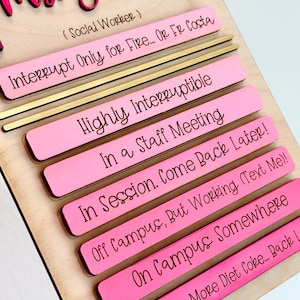 ( Social Worker )
Interrupt Only for Fire... Or Fr Costa
Highly Interruptible
In a Staff Meeting
In Session, Come Back Later!
Off Campus, But Working (Text Me!)
On Campus Somewhere
More Diet Coke... Back